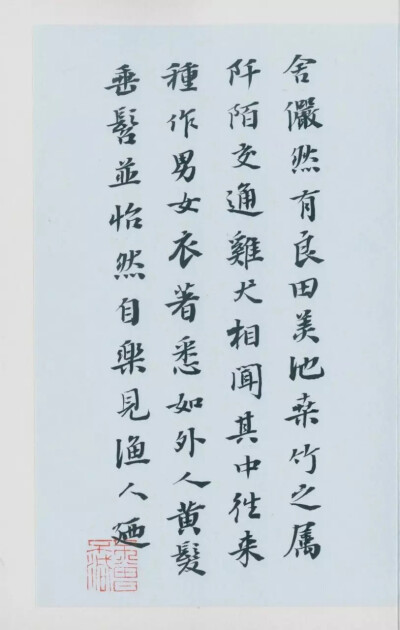 舍儼然有良田美池桒竹之属
阡陌交通雞犬相聞其中往来
種作男女衣著悉如外人黄髮
垂髫並怡然自樂見漁人廼